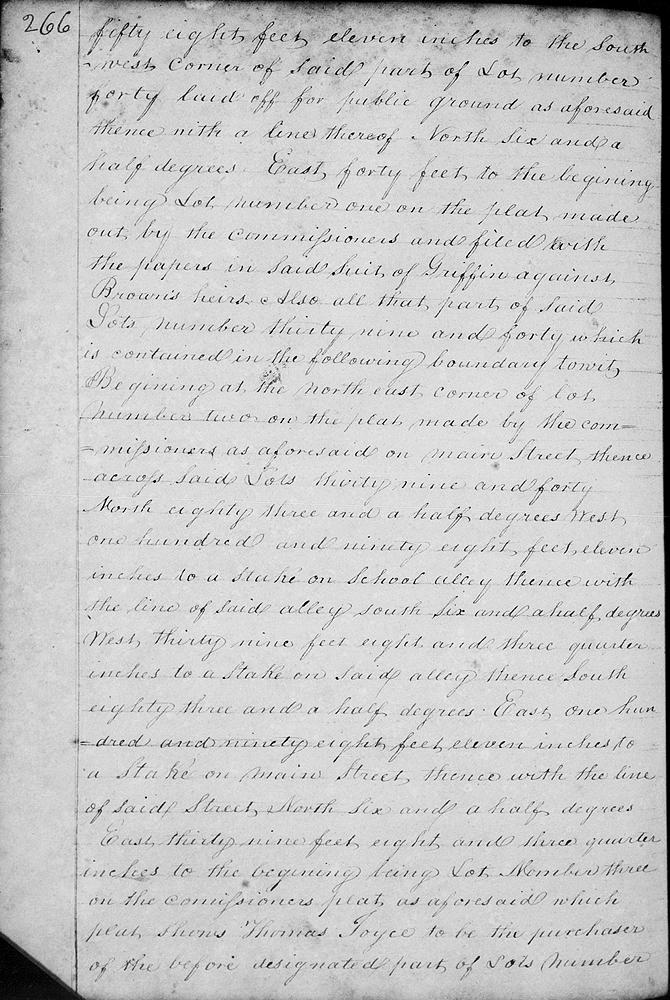 266
fifty eight feet eleven inches to the South
-west Corner of said part of Lot number
forty laid off for public ground as aforesaid
thence with a line thereof North Six and a
half degrees East forty feet to the begining
being Lot number one on the plat made
out by the commissioners and filed with
the papers in said suit of Griffin against
Brown's heirs. Also all that part of said
Lots number thirty nine and forty which
is contained in the following boundary towit,
Begining at the north east corner of lot
number two on the plat made by the com=
=missioners as aforesaid on main Street thence
across said Lots thirty nine and forty
North eighty three and a half degrees West
one hundred and ninety eight feet eleven
inches to a stake on School alley thence with
the line of said alley south six and a half degrees
West thirty nine feet eight and three quarter
inches to a stake on said alley thence South
eighty three and a half degrees East one hun
=dred and ninety eight feet eleven inches to
a Stake on main Street thence with the line
of said Street North Six and a half degrees
East thirty nine feet eight and three quarter
inches to the begining being Lot Nomber three
on the comissioners plat as aforesaid which
plat shows Thomas Joyce to be the purchaser
of the before designated part of Lots number